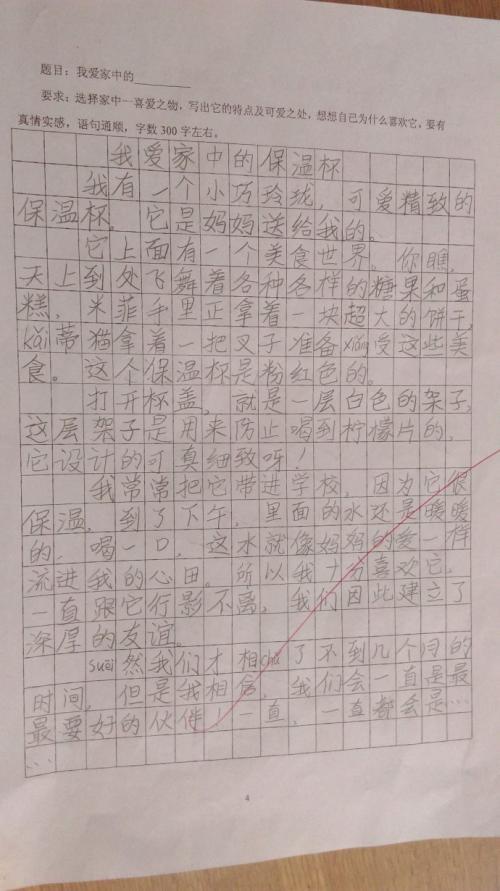 题目：我爱家中的
要求：选择家中一喜爱之物，写出它的特点及可爱之处，想想自己为什么喜欢它，要有
真情实感，语句通顺，字数300字左右。
我爱家中的保温杯
我有一个小巧玲珑，可爱精致的
保温杯。它是妈妈送给我的。
它上面有一个美食世界。你瞧，
天上到处飞舞着各种各样的糖果和蛋
糕，米菲手里正拿着一块超大的饼干，
kǎi蒂猫拿着一把叉子准备xiǎng受这些美
食。这个保温杯是粉红色的。
打开杯盖，就是一层白色的架子，
这层架子是用来防止喝到柠檬片的，
它设计的可真细致呀！
我常常把它带进学校，因为它很
保温，到了下午，里面的水还是暖暖
的，喝一口，这水就像妈妈的爱一样
流进我的心田。所以我十分喜欢它，
一直跟它行影不离，我们因此建立了
深厚的友谊。
suēi然我们才相chǔ了不到几个月的
时间，但是我相信，我们会一直是最
最要好的伙伴！一直，一直都会是…
…
4